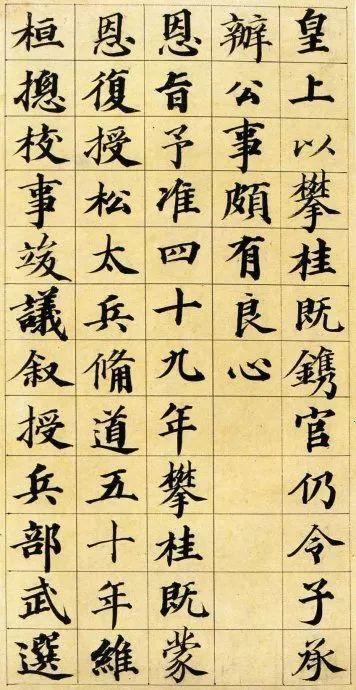 皇上以攀桂既鐫官仍令子承
辦公事頗有良心
恩旨予准四十九年攀桂既蒙
恩復授松太兵備道五十年維
桓摠校事竣議叙授兵部武選